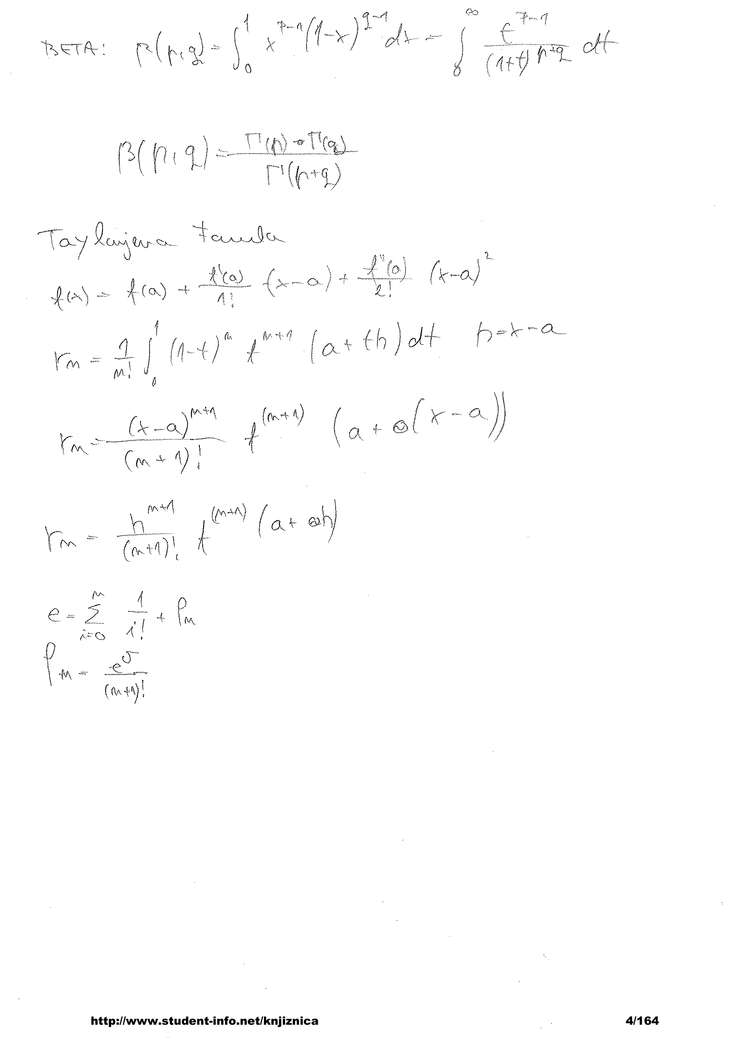 BETA: β(p,q) = ∫₀¹ x^(p-1) (1-x)^(q-1) dx = ∫₀^∞ t^(p-1) / (1+t)^(p+q) dt
β(p,q) = Γ(p) · Γ(q) / Γ(p+q)
Taylorjeva formula
f(x) = f(a) + f'(a)/1! (x-a) + f''(a)/2! (x-a)²
r_n = 1/n! ∫₀¹ (1-t)^n f^(n+1) (a+th) dt h=x-a
r_n = (x-a)^(n+1) / (n+1)! f^((n+1)) (a + Θ(x-a))
r_n = h^(n+1) / (n+1)! f^((n+1)) (a + Θh)
e = Σ_(i=0)^n 1/i! + ρ_n
ρ_n = e^σ / (n+1)!
http://www.student-info.net/knjiznica 4/164